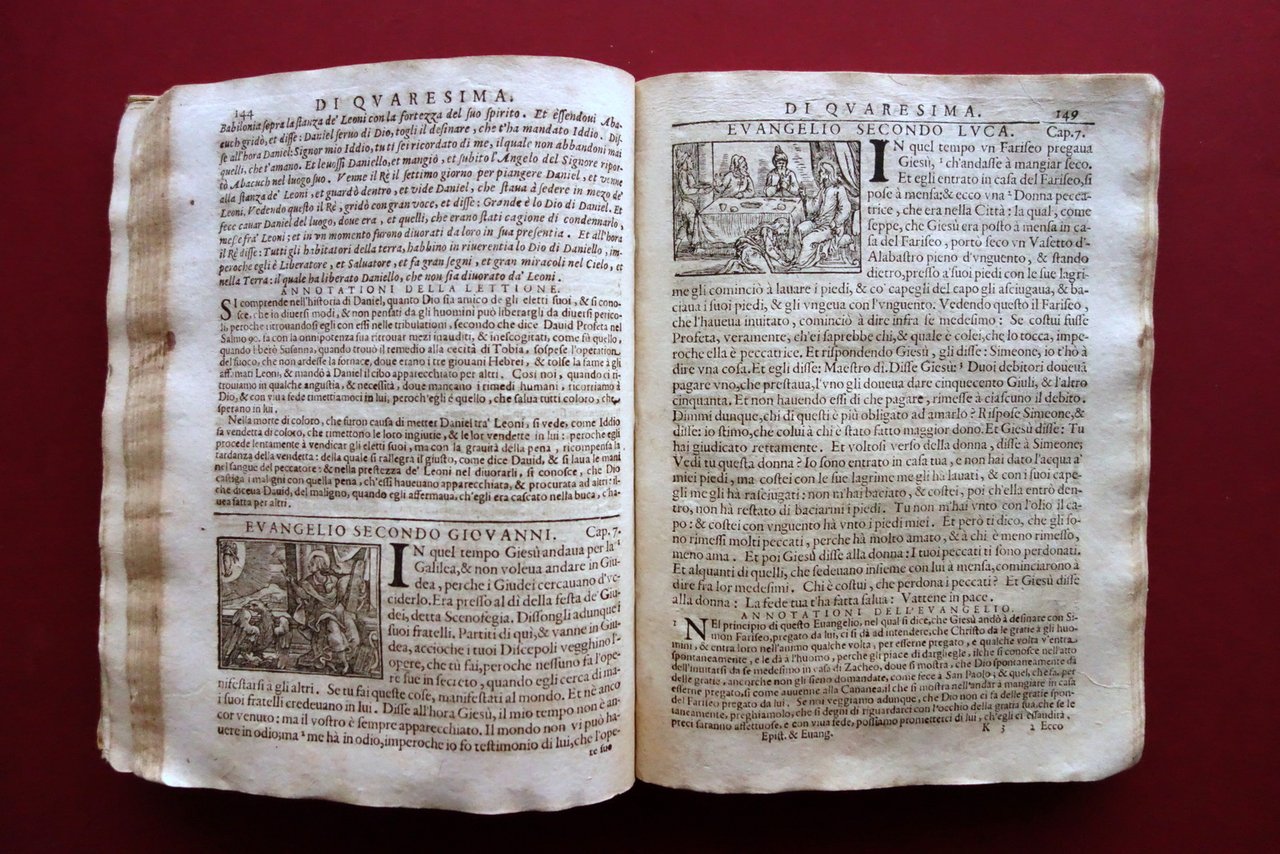 144
DI QVARESIMA.
Babilonia sopra la stanza de' Leoni con la fortezza del suo spirito. Et essendoui Aba-
cuch gridò, et disse: Daniel seruo di Dio, togli il desinare, che t'ha mandato Iddio. Dis-
se all'hora Daniel: Signor mio Iddio, tu ti sei ricordato di me, il quale non abbandoni mai
quelli, che t'amano. Et leuossi Daniello, et mangiò, et subito l'Angelo del Signore ripor-
tò Abacuch nel luogo suo. Venne il Rè il settimo giorno per piangere Daniel, et venne
alla stanza de' Leoni, et guardò dentro, et vide Daniel, che staua à sedere in mezo de'
Leoni. Vedendo questo il Rè, gridò con gran voce, et disse: Grande è lo Dio di Daniel. Et
fece cauar Daniel del luogo, doue era, et quelli, che erano stati cagione di condennarlo,
mes e frà Leoni; et in vn momento furono diuorati da loro in sua presentia. Et all'hora
il Rè disse: Tutti gli habitatori della terra, habbino in riuerentia lo Dio di Daniello, im-
peroche egli è Liberatore, et Saluatore, et fa gran segni, et gran miracoli nel Cielo, et
nella Terra: il quale ha liberato Daniello, che non sia diuorato da' Leoni.
ANNOTATIONI DELLA LETTIONE.
SI comprende nell'historia di Daniel, quanto Dio sia amico de gli eletti suoi, & si cono-
sce, che in diuersi modi, & non pensati da gli huomini può liberargli da diuersi perico-
li, peroche ritrouandosi egli con essi nelle tribulationi, secondo che dice Dauid Profeta nel
Salmo 90. fa con la onnipotenza sua ritrouar mezi inauditi, & inescogitati, come fù quello,
quando liberò Susanna, quando trouò il remedio alla cecità di Tobia, sospese l'operation
del fuoco, che non ardesse la fornace, doue erano i tre giouani Hebrei, & tolse la fame à gli
affamati Leoni, & mandò à Daniel il cibo apparecchiato per altri. Così noi, quando ci ri-
trouiamo in qualche angustia, & necessità, doue mancano i rimedi humani, ricorriamo à
Dio, & con viua fede rimettiamoci in lui, peroch'egli è quello, che salua tutti coloro, che
sperano in lui.
Nella morte di coloro, che furon causa di metter Daniel tra' Leoni, si vede, come Iddio
fa vendetta di coloro, che rimettono le loro ingiurie, & le lor vendette in lui: peroche egli
procede lentamente à vendicar gli eletti suoi, ma con la grauità della pena, ricompensa la
tardanza della vendetta: della quale si rallegra il giusto, come dice Dauid, & si laua le mani
nel sangue del peccatore: & nella prestezza de' Leoni nel diuorarli, si conosce, che Dio
castiga i maligni con quella pena, ch'essi haueuano apparecchiata, & procurata ad altri: il
che diceua Dauid, del maligno, quando egli affermaua, ch'egli era cascato nella buca, c'ha-
uea fatta per altri.
EVANGELIO SECONDO GIOVANNI. Cap. 7.
IN quel tempo Giesù andaua per la
Galilea, & non voleua andare in Giu-
dea, perche i Giudei cercauano d'vc-
ciderlo. Era presso al di della festa de' Giu-
dei, detta Scenofegia. Dissongli adunque i
suoi fratelli. Partiti di quì, & vanne in Giu-
dea, accioche i tuoi Discepoli vegghino l'-
opere, che tù fai, peroche nessuno fa l'ope-
re sue in secreto, quando egli cerca di ma-
nifestarsi a gli altri. Se tu fai queste cose, manifestati al mondo. Et nè anco
i suoi fratelli credeuano in lui. Disse all'hora Giesù, il mio tempo non è an-
cor venuto: ma il vostro è sempre apparecchiato. Il mondo non vi può ha-
uere in odio; ma me hà in odio, imperoche io fo testimonio di lui, che l'ope-
re sue
DI QVARESIMA.
149
EVANGELIO SECONDO LVCA. Cap. 7.
IN quel tempo vn Fariseo pregaua
Giesù, ch'andasse à mangiar seco.
Et egli entrato in casa del Fariseo, si
pose à mensa; & ecco vna Donna pecca-
trice, che era nella Città: la qual, come
seppe, che Giesù era posto à mensa in ca-
sa del Fariseo, portò seco vn Vasetto d'-
Alabastro pieno d'vnguento, & stando
dietro, presso a' suoi piedi con le sue lagri-
me gli cominciò à lauare i piedi, & co' capegli del capo gli asciugaua, & ba-
ciaua i suoi piedi, & gli vngeua con l'vnguento. Vedendo questo il Fariseo,
che l'haueua inuitato, cominciò à dire infra se medesimo: Se costui fusse
Profeta, veramente, ch'ei saprebbe chi, & quale è colei, che lo tocca, impe-
roche ella è peccatrice. Et rispondendo Giesù, gli disse: Simeone, io t'hò à
dire vna cosa. Et egli disse: Maestro dì. Disse Giesù: Duoi debitori doueua
pagare vno, che prestaua, l'vno gli doueua dare cinquecento Giuli, & l'altro
cinquanta. Et non hauendo essi di che pagare, rimesse à ciascuno il debito.
Dimmi dunque, chi di questi è più obligato ad amarlo? Rispose Simeone, &
disse: io stimo, che colui à chi è stato fatto maggior dono. Et Giesù disse: Tu
hai giudicato rettamente. Et voltosi verso della donna, disse à Simeone;
Vedi tu questa donna? Io sono entrato in casa tua, e non hai dato l'acqua a'
miei piedi, ma costei con le sue lagrime me gli hà lauati, & con i suoi cape-
gli me gli hà rasciugati: non m'hai baciato, & costei, poi ch'ella entrò den-
tro, non hà restato di baciarmi i piedi. Tu non m'hai vnto con l'olio il ca-
po: & costei con vnguento hà vnto i piedi miei. Et però ti dico, che gli so-
no rimessi molti peccati, perche hà molto amato, & à chi è meno rimesso,
meno ama. Et poi Giesù disse alla donna: I tuoi peccati ti sono perdonati.
Et alquanti di quelli, che sedeuano insieme con lui à mensa, cominciarono à
dire fra lor medesimi. Chi è costui, che perdona i peccati? Et Giesù disse
alla donna: La fede tua t'ha fatta salua: Vattene in pace.
ANNOTATIONI DELL'EVANGELIO.
1 NEl principio di questo Euangelio, nel qual si dice, che Giesù andò à desinare con Si-
mon Fariseo, pregato da lui, ci si dà ad intendere, che Christo dà le gratie à gli huo-
mini, & entra loro nell'animo qualche volta, per esserne pregato, e qualche volta v'entra
spontaneamente, e le dà à l'huomo, perche gli piace di dargliele, ilche si conosce nell'atto
dell'inuitarsi da se medesimo in casa di Zacheo, doue si mostra, che Dio spontaneamente dà
delle gratie, ancorche non gli sieno domandate, come fece à San Paolo; & quel, che fa, per
esserne pregato, si come auuenne alla Cananea, il che si mostra nell'andar à mangiare in casa
del Fariseo pregato da lui. Se noi veggiamo adunque, che Dio non ci fa delle gratie spon-
taneamente, preghiamolo, che si degni di riguardarci con l'occhio della gratia sua, che se le
preci saranno affettuose, e con viua fede, possiamo prometterci di lui, ch'egli ci esaudirà.
Epist. & Euang. K 3 2 Ecco